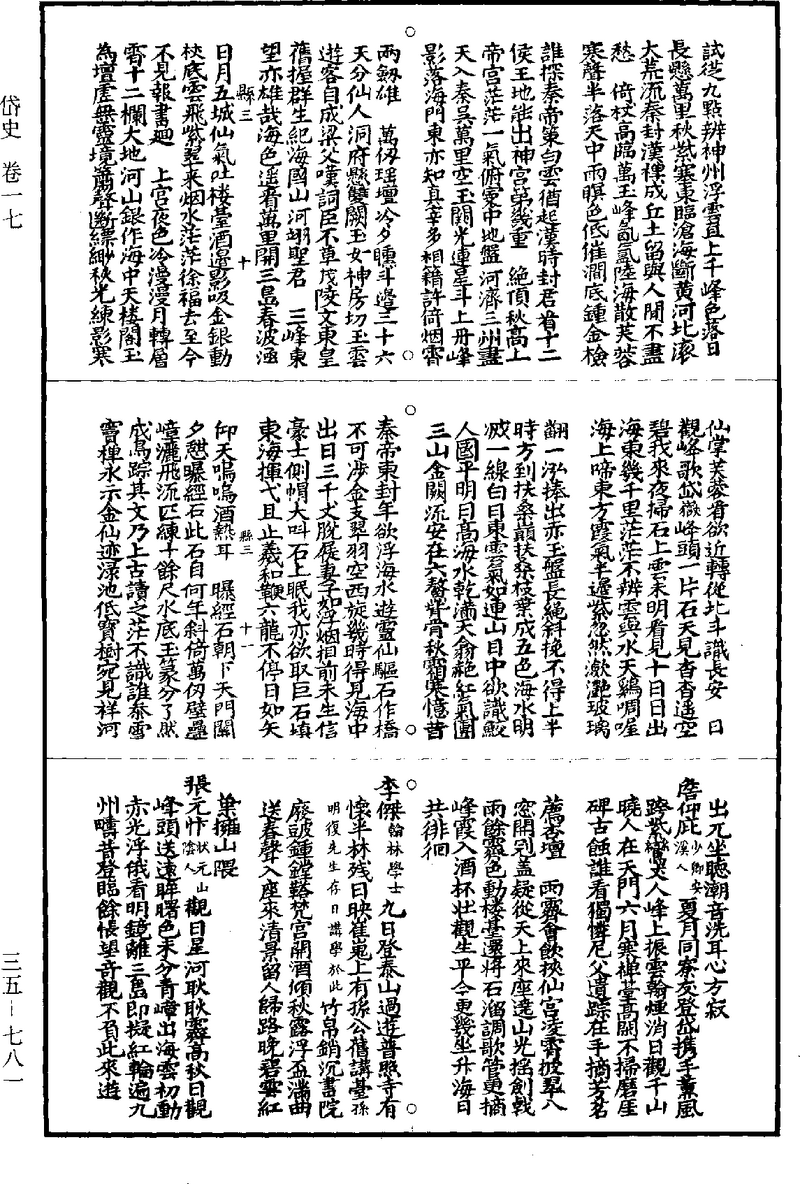 岱史 卷一七
三五－七八一
試從九點辨神州浮雲直上千峰色落日
長懸萬里秋紫塞東臨滄海斷黃河北滾
大荒流秦封漢禪成丘土留與人間不盡
愁 倚杖高臨萬玉峰氤氳陸海散芙蓉
寒聲半落天中雨暝色低催澗底鍾金檢
誰探秦帝策白雲猶起漢時封君看十二
侯王地能出神宮第幾重 絕頂秋高上
帝宮茫茫一氣俯寰中地盤河濟三州盡
天入秦吳萬里空玉關光連星斗上丹峰
影落海門東亦知真宰多相籍許倚烟霄
兩劒雄 萬仞瑤壇吟夕曛斗邊三十六
天分仙人洞府懸雙闕玉女神房切玉雲
遊客自成梁父嘆詞臣不草茂陵文東皇
舊握群生紀海國山河翊聖君 三峰東
望亦雄哉海色遥看萬里開三島春波涵
縣三 十
日月五城仙氣吐楼臺酒邊影吸金銀動
杖底雲飛紫翠来烟水茫茫徐福去至今
不見報書廻 上宮夜色冷漫漫月轉層
霄十二欄大地河山銀作海中天楼閣玉
為壇虛無靈境簫聲斷縹緲秋光練影寒
仙掌芙蓉看欲近轉從北斗識長安 日
觀峰歌岱嶽峰頭一片石天見杳杳遥空
碧我來夜掃石上雲未明看見十日日出
海東幾千里茫茫不辨雲與水天鷄啁喔
海上啼東方霞氣半邊紫忽然瀲灧玻璃
翻一泓捧出赤玉盤長繩斜挽不得上半
時方到扶桑巔扶桑枝葉成五色海水明
滅一線白日東雲氣如連山日中欲識鮫
人國平明日高海水乾滿天翕赩紅氣團
三山金闕流安在六鰲背骨秋霜寒憶昔
秦帝東封年欲浮海水遊靈仙驅石作橋
不可涉金支翠羽空西旋幾時得見海中
出日三千丈脫屣妻子如浮烟相前未生信
豪士側帽大叫石上眠我亦欲取巨石填
東海揮弋且止羲和鞭六龍不停日如矢
縣三 十一
仰天嗚嗚酒熱耳 曝經石朝卜天門關
夕憇曝經石此石自何年斜倚萬仞壁疊
嶂灑飛流匹練十餘尺水底玉篆分了然
成鳥踪其文乃上古讀之茫不識誰泰雪
寶禪永示金仙迹渌池低寶樹宛見祥河
出兀坐聽潮音洗耳心方寂
詹仰庇少卿安溪人 夏月同寮友登岱携手薰風
路紫鸞丈人峰上振雲翰煙消日觀千山
曉人在天門六月寒禪臺高閣不掃磨崖
碑古蝕誰看獨憐尼父遺踪在手摘芳茗
薦杏壇 雨霽會飲挾仙宮凌霄披翠八
窓開羽蓋疑從天上來座遶山光揺劍戟
雨餘靈色動楼臺還將石溜調歌管更摘
峰霞入酒杯壯觀生平今更幾坐升海日
共徘徊
李傑翰林學士 九日登泰山過遊普照寺有
懷半林残日映崔嵬上有孫公舊講臺孫
明復先生存日講學於此竹帛銷沉書院
廢皷鍾鏜鞳梵宮開酒傾秋露浮盃滿曲
送春聲入座來清景留人歸路晚碧雲紅
葉擁山隈
張元忭状元山陰人 觀日星河耿耿霽高秋日觀
峰頭送遠眸曙色未分青嶂出海雲初動
赤光浮俄看明鏡離三島即擬紅輪遍九
州疇昔登臨餘悵望奇觀不負此來遊